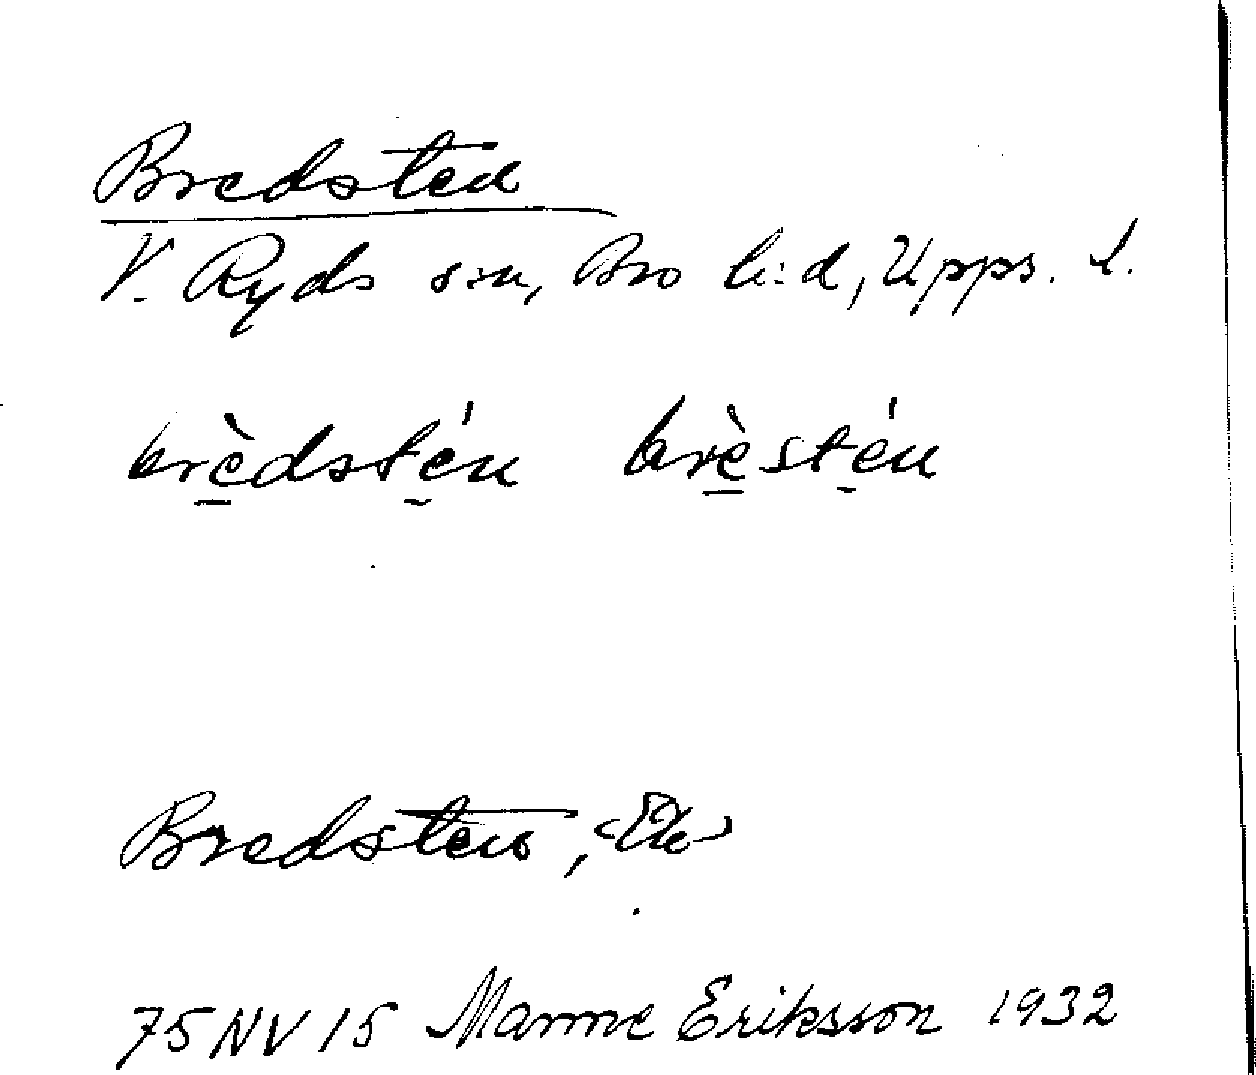 Bredsten
V. Ryds s:n, Bro h:d, Upps. l.
brèdstén brèstén
Bredsten,
75 NV 15 Manne Eriksson 1932